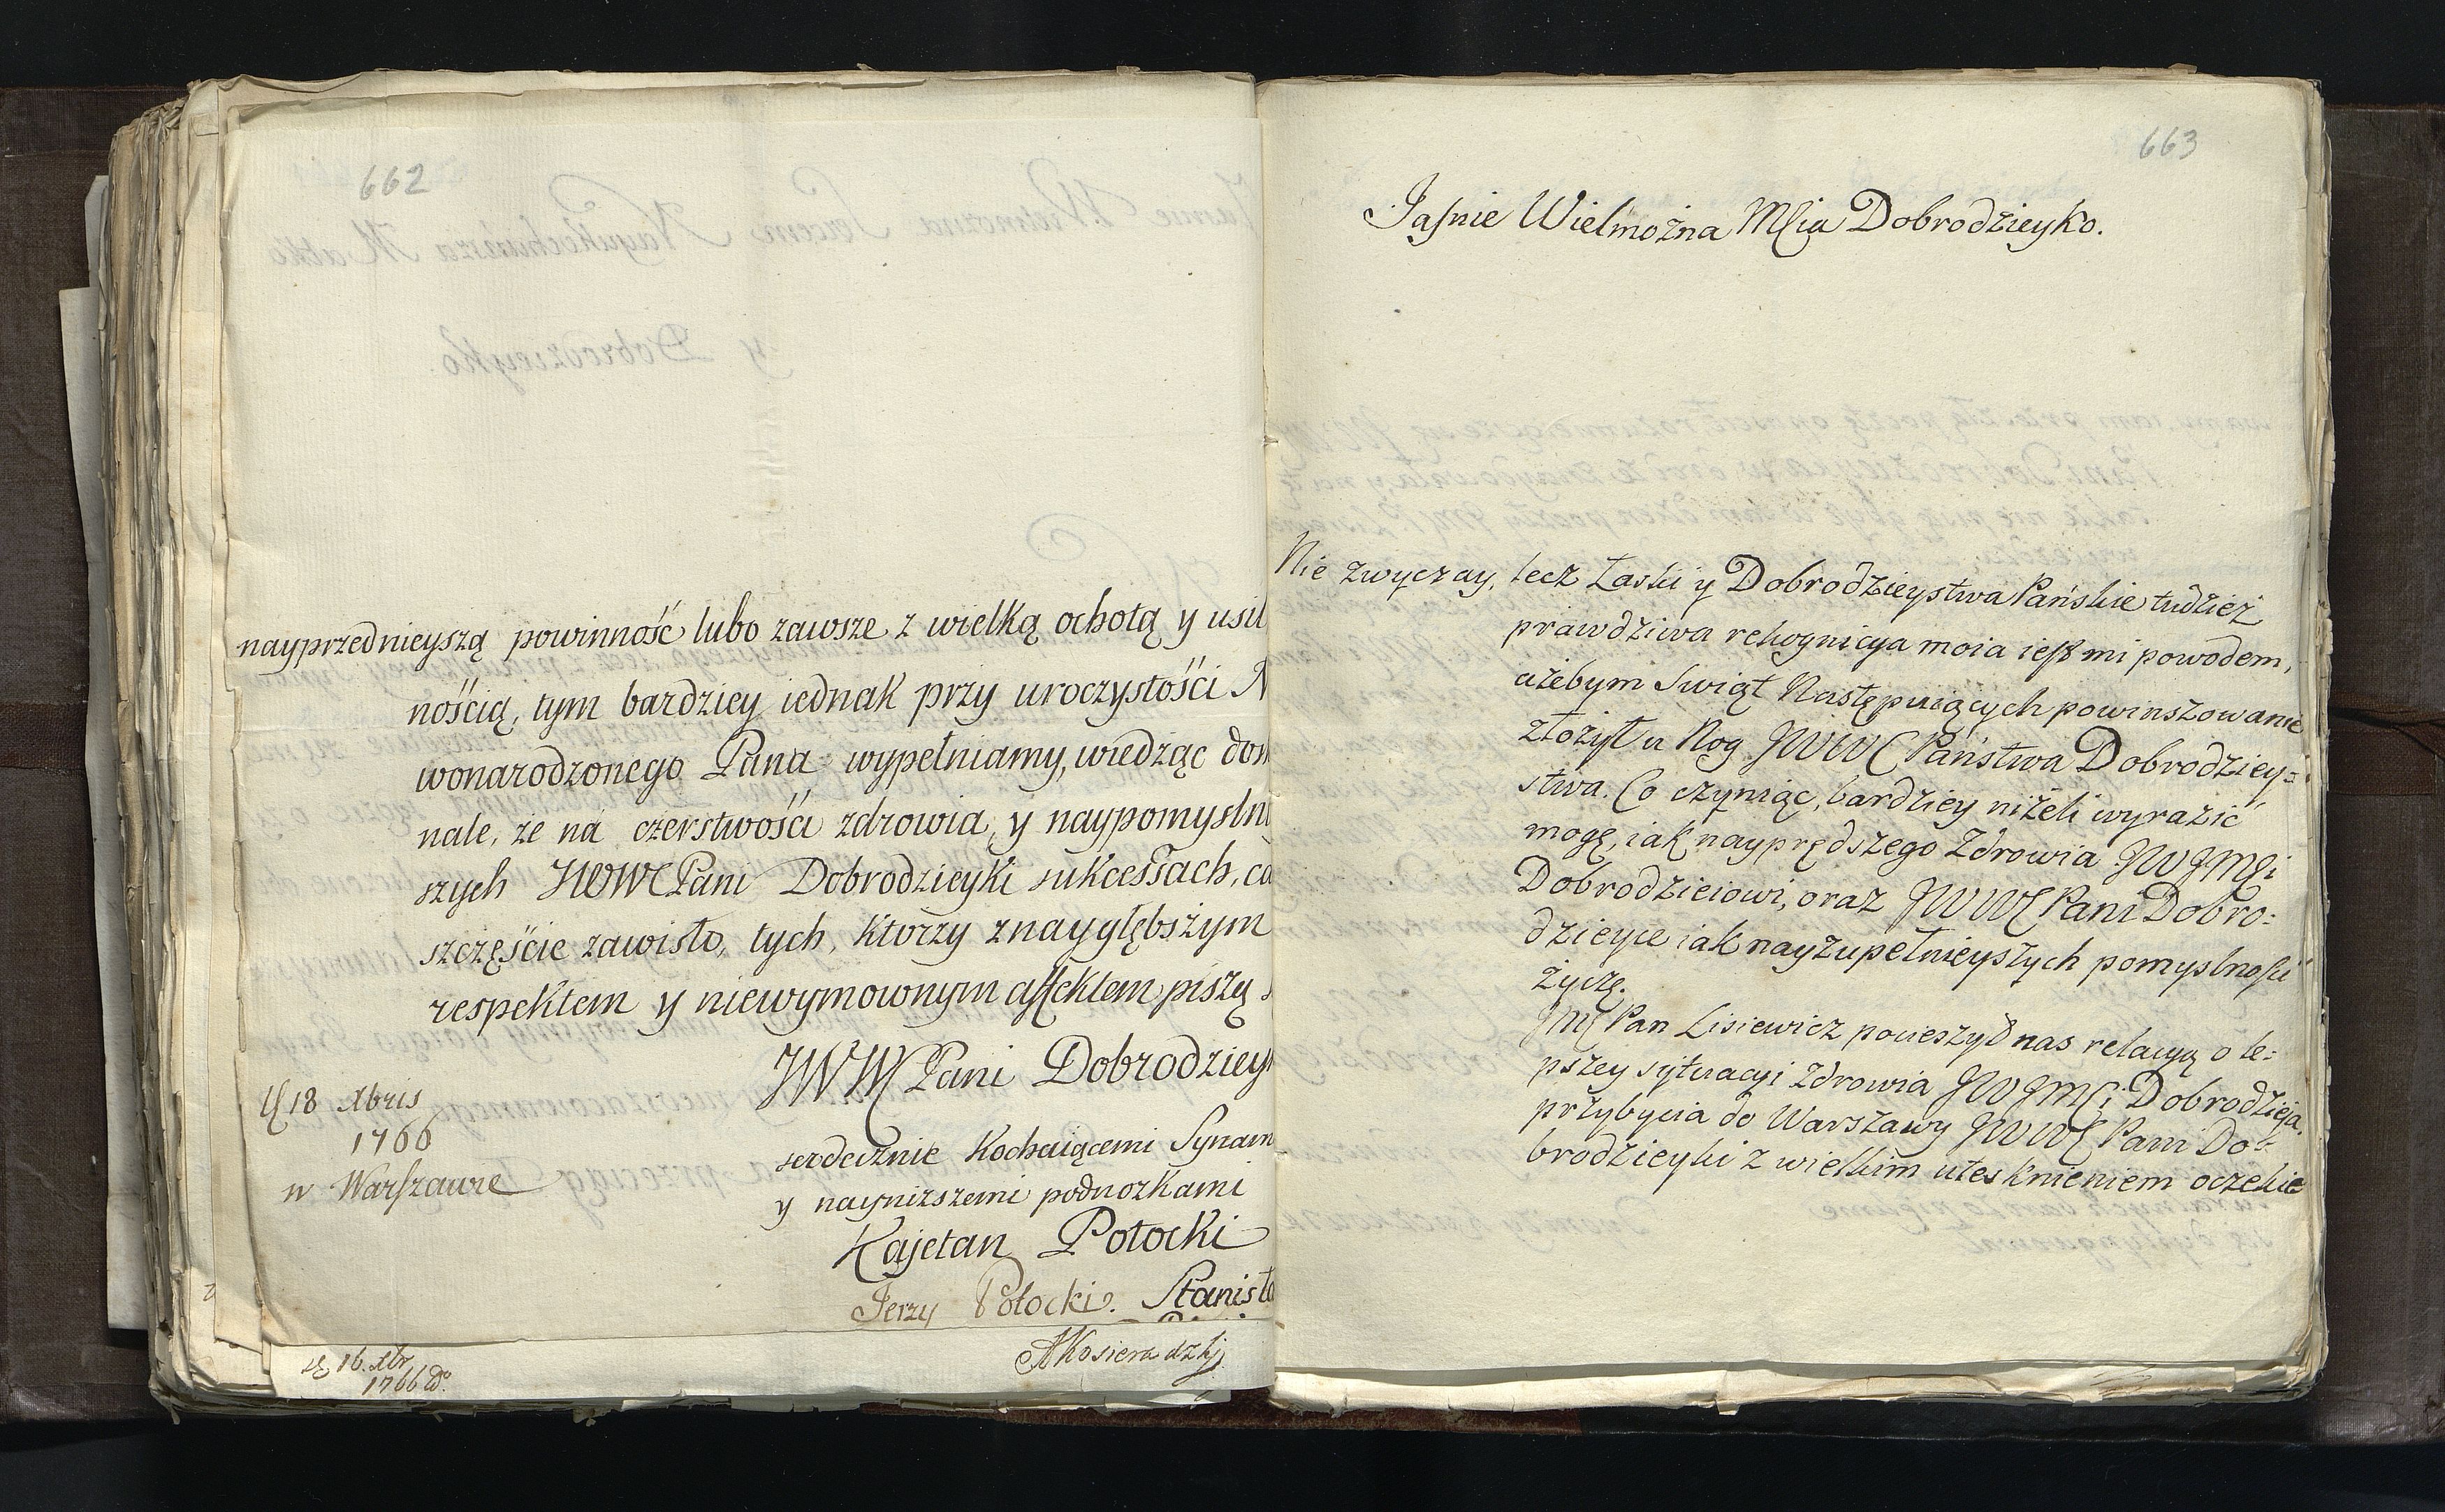 662
nayprzednieyszą powinność lubo zawsze z wielką ochotą y usil
nością, tym bardziey iednak przy uroczystości N
wonarodzonego Pana wypełniamy, wiedząc dos
nale, że na czerstwości zdrowia, y naypomyslni
szych JWWC Pani Dobrodzieyki sukcessach, ca
szczęście zawisło, tych, ktorzy z naygłębszym
respektem y niewymownym affektem piszą
JWWC Pani Dobrodziey
18 Xbris
1766
w Warszawie
serdecznie kochaiącemi Synam
y nayniższemi podnożkami
Kajetan Potocki
Jerzy Potocki. Stanisła
16. Xbr
1766
AKosieradzkj
663
Jaśnie Wielmożna Mścia Dobrodzieyko.
Nie zwyczay, lecz Łaski y Dobrodzieystwa Pańskie tudzież
prawdziwa rekognicya moia iest mi powodem,
ażebym Swiąt Następuiących powinszowanie
złożył u Nog JWWC Państwa Dobrodziey=
stwa. Co czyniąc, bardziey niżeli wyrazić
mogę, iak nayprędszego Zdrowia JWJMCi
Dobrodzieiowi, oraz JWWC Pani Dobro:
dzieyce iak nayzupełnieyszych pomyslności
życzę.
JMC Pan Lisiewicz pocieszył nas relacyą o le:
pszey sytuacyi Zdrowia JWJMCi Dobrodzieja.
przybycia do Warszawy JWWC Pani Do:
brodzieyki z wielkim utesknieniem oczekie